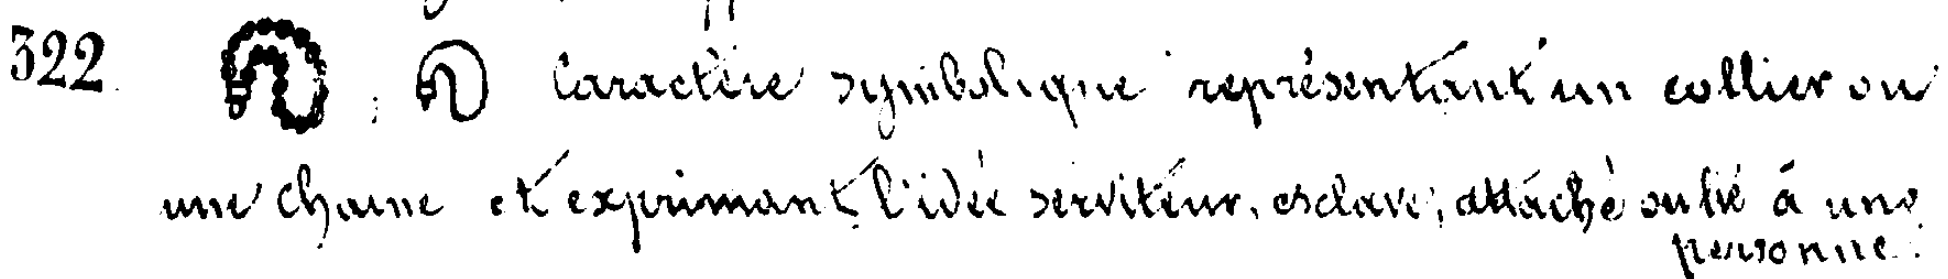 322. , Caractère symbolique représentant un collier ou
une chaine et exprimant l'idée serviteur, esclave, attaché ou lié à une
personne.